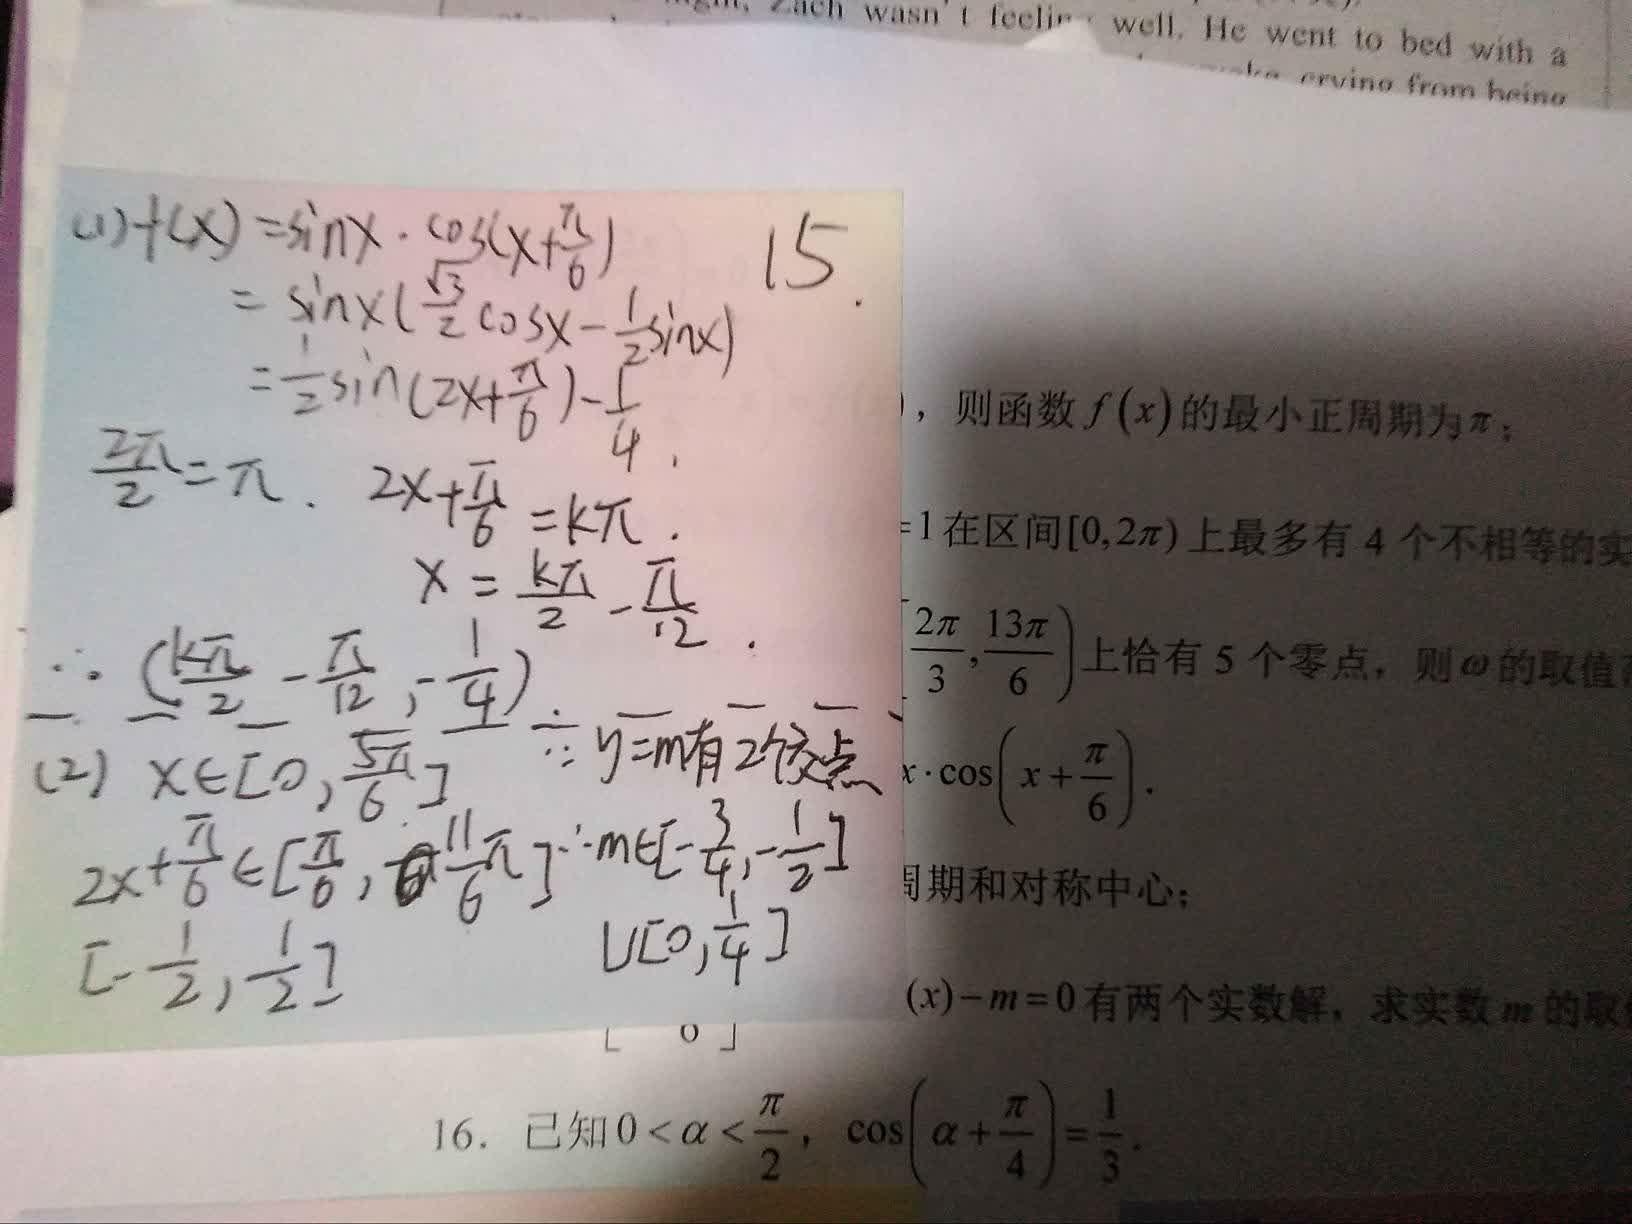 Zach wasn't feeling well. He went to bed with a
crying from being
15.
(1) f(x) = sinx · cos(x+π/6)
= sinx(√3/2 cosx - 1/2 sinx)
= 1/2 sin(2x+π/6) - 1/4.
2π/2 = π. 2x+π/6 = kπ.
x = kπ/2 - π/12.
∴ (kπ/2 - π/12, -1/4)
(2) x∈[0, 5π/6] ∵ y=m有2个交点
2x+π/6∈[π/6, 11/6π] ∴m∈[-3/4, -1/2]
[-1/2, 1/2] U[0, 1/4]
), 则函数f(x)的最小正周期为π;
=1在区间[0,2π)上最多有4个不相等的实
[2π/3, 13π/6)上恰有5个零点, 则ω的取值
x·cos(x+π/6).
周期和对称中心;
(x)-m=0有两个实数解, 求实数m的取
16. 已知0<α<π/2, cos(α+π/4)=1/3.